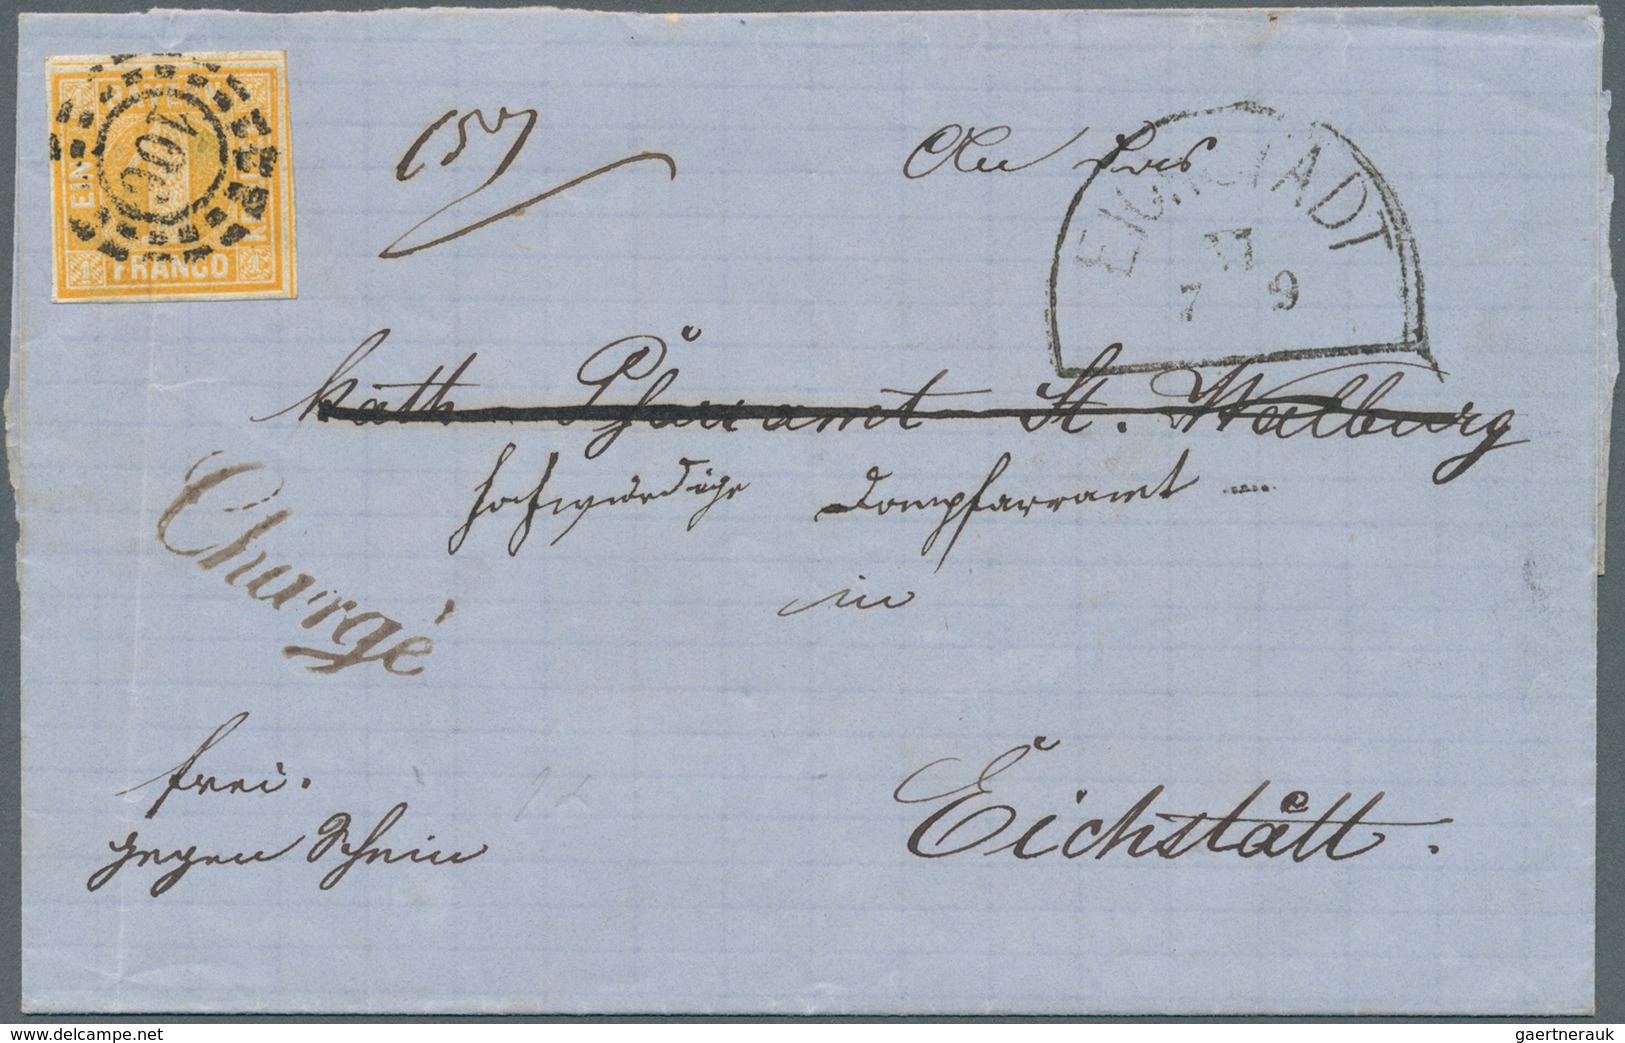 BAYERN
EIN
KREUZER
FRANCO
1 1
An das
EICHSTADT
VI
7 9
kath. Pfarramt St. Walburg
hochwürdige Dompfarramt
in
Chargé
frei.
gegen Schein
Eichstätt.
gaertnerauk
www.delcampe.net